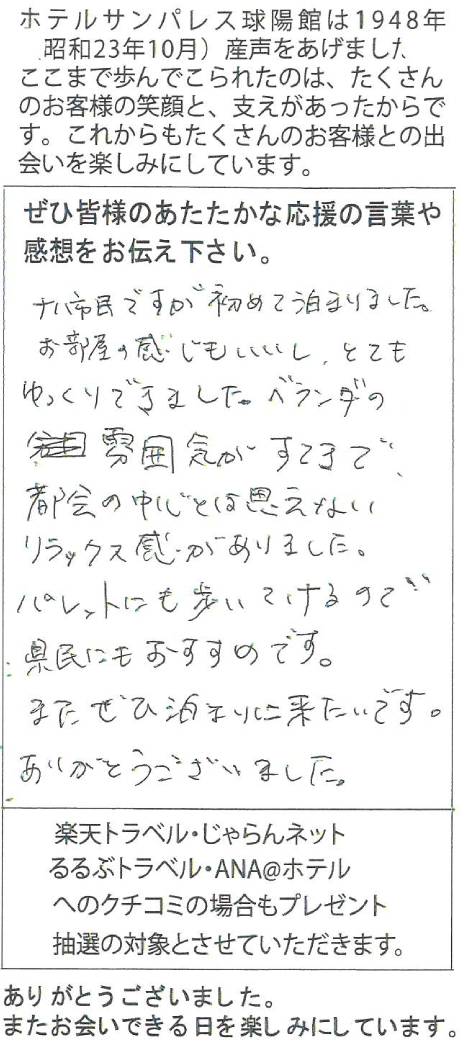 ホテルサンパレス球陽館は1948年
昭和23年10月）産声をあげました
ここまで歩んでこられたのは、たくさん
のお客様の笑顔と、支えがあったからで
す。これからもたくさんのお客様との出
会いを楽しみにしています。
ぜひ皆様のあたたかな応援の言葉や
感想をお伝え下さい。
ナハ市民ですが初めて泊まりました。
お部屋の感じもいいし、とても
ゆっくりできました。ベランダの
雰囲気がすてきで、
都会の中心とは思えない
リラックス感がありました。
パレットにも歩いていけるので
県民にもおすすめです。
またぜひ泊まりに来たいです。
ありがとうございました。
楽天トラベル・じゃらんネット
るるぶトラベル・ANA@ホテル
へのクチコミの場合もプレゼント
抽選の対象とさせていただきます。
ありがとうございました。
またお会いできる日を楽しみにしています。